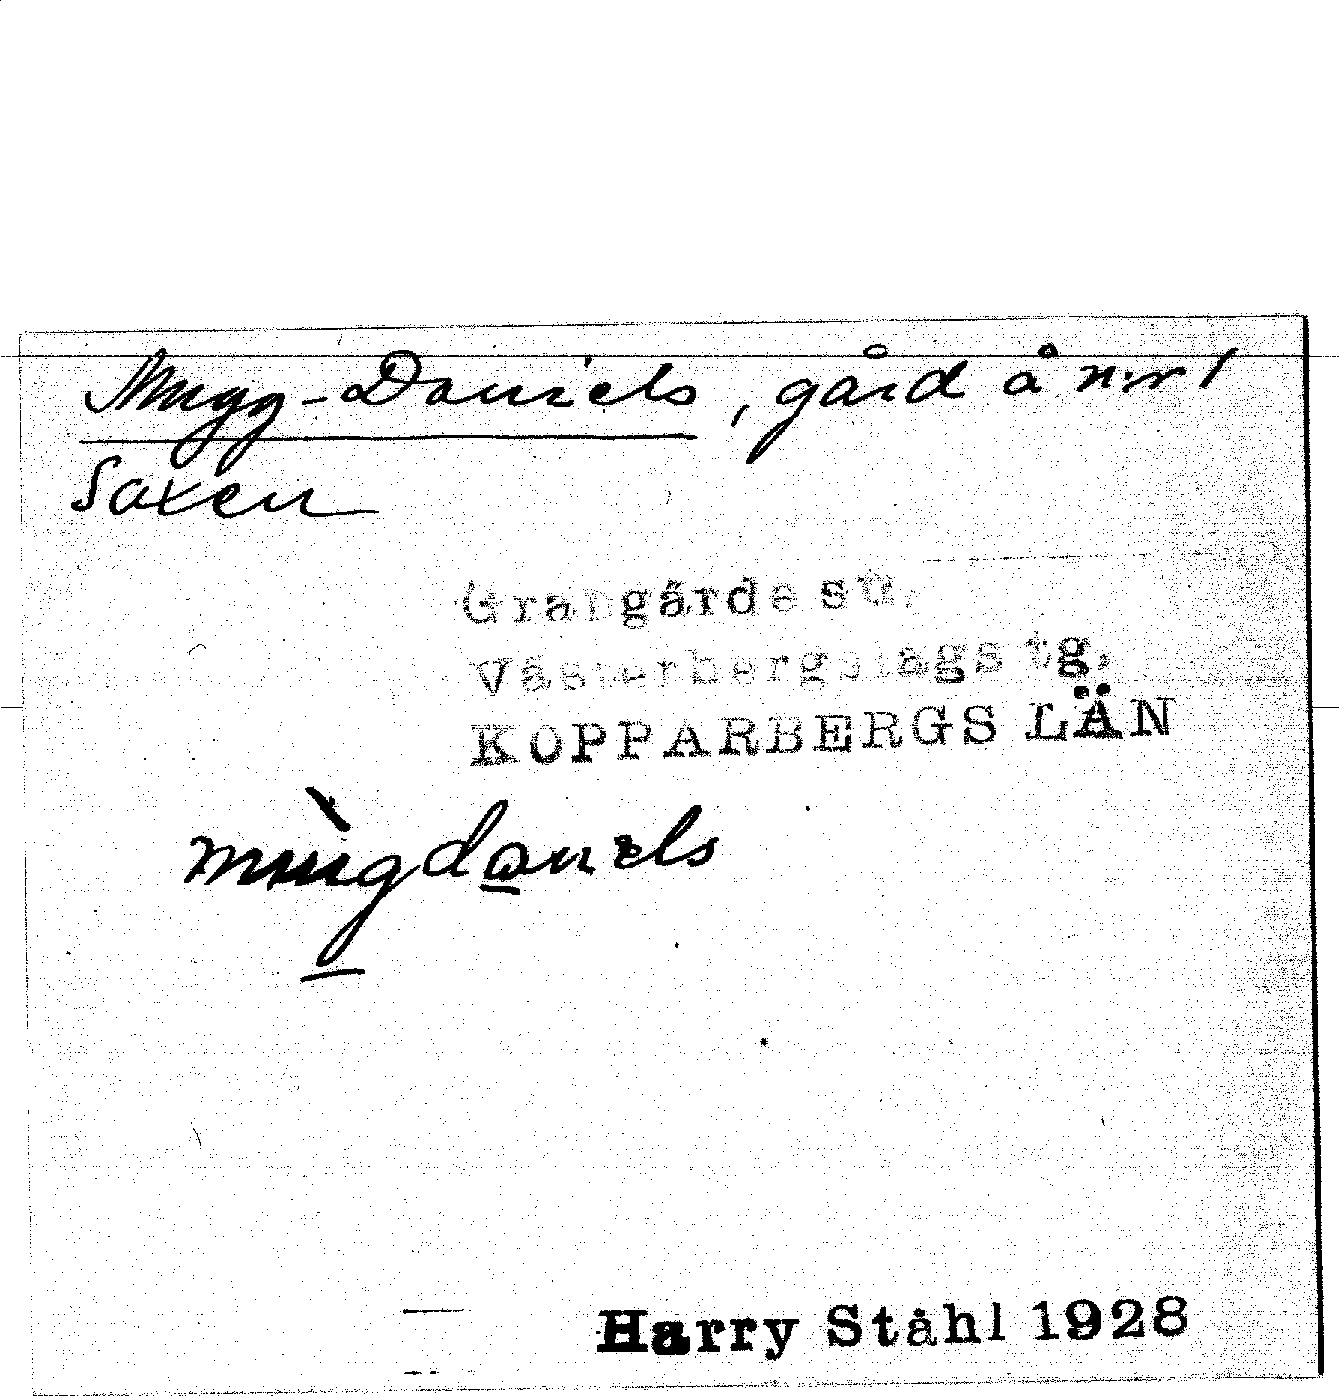 Mugg-Daniels, gård å n:r 1
Saxen
Grangärde sn.
Västerbergslags tg.
KOPPARBERGS LÄN
mùgdaniels
Harry Ståhl 1928